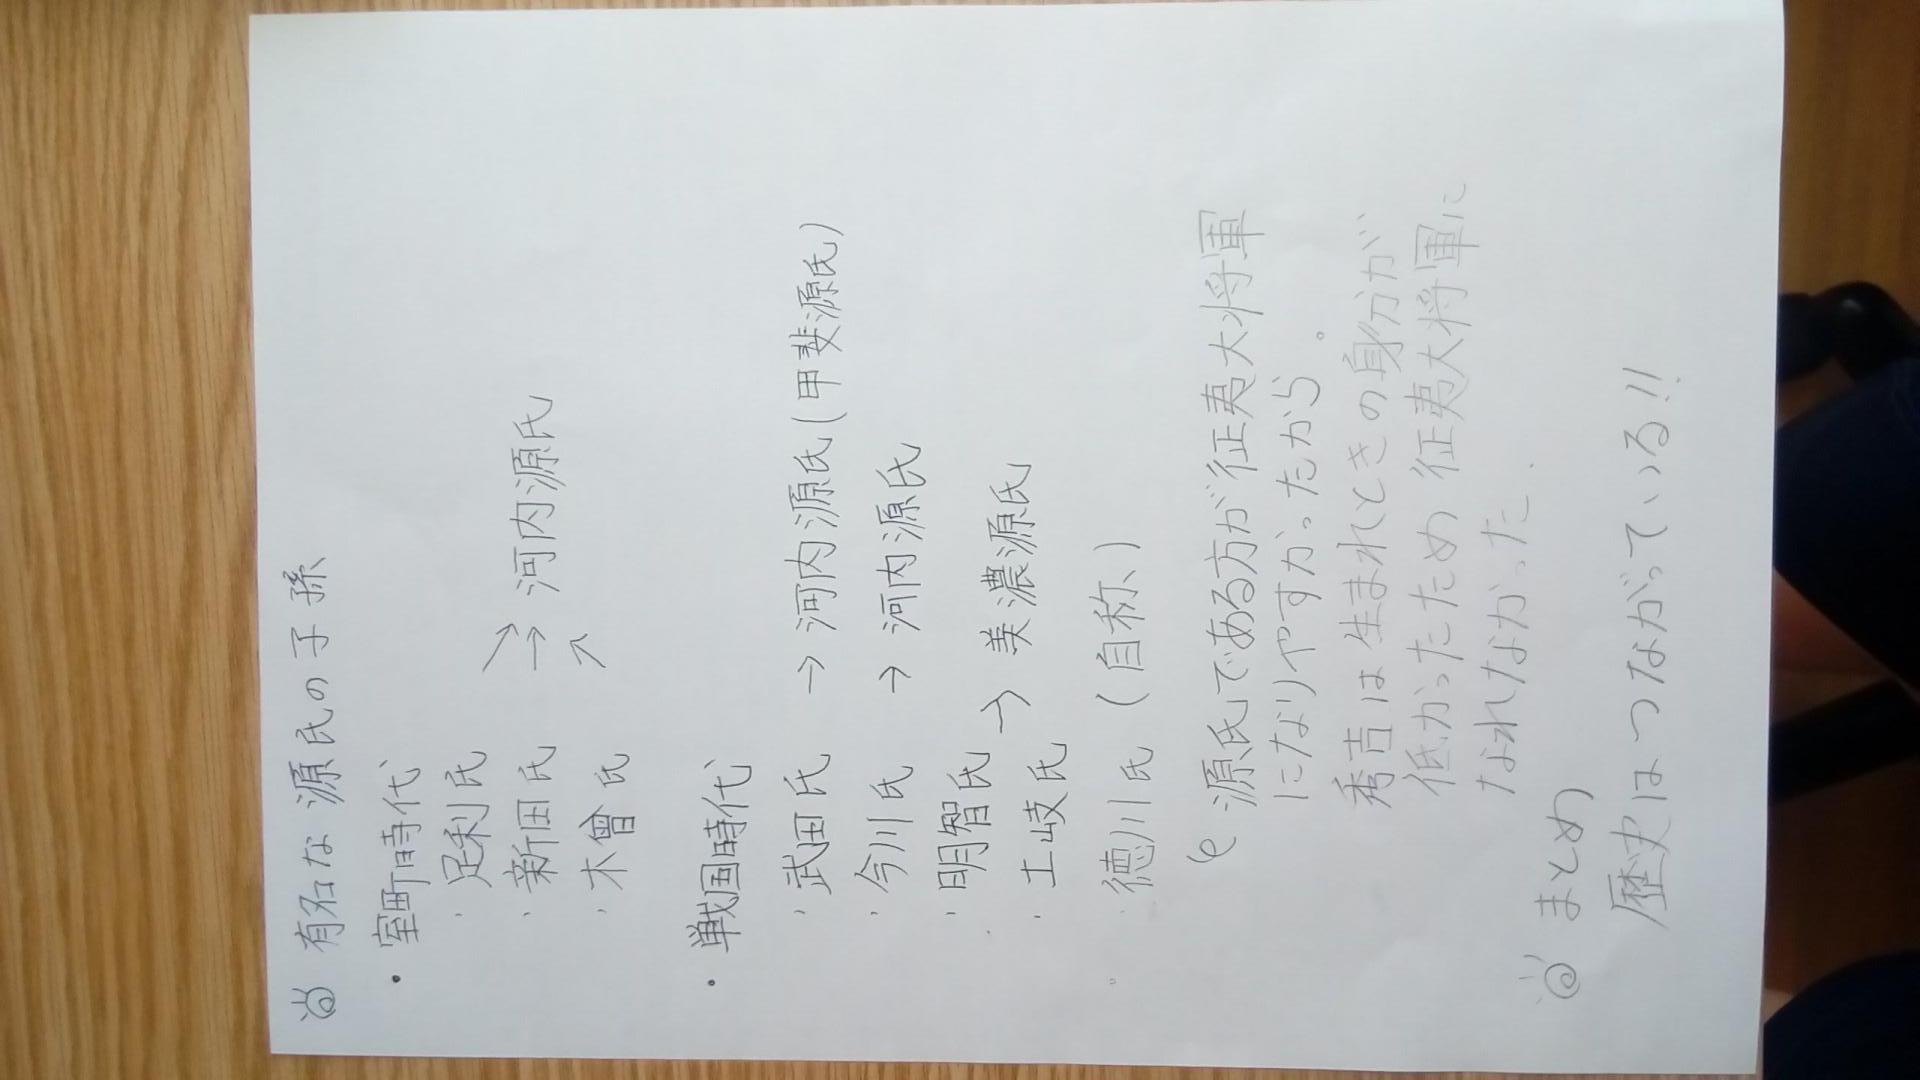 有名な源氏の子孫
・室町時代
・足利氏
・新田氏 → 河内源氏
・木曾氏
・戦国時代
・武田氏 → 河内源氏(甲斐源氏)
・今川氏 → 河内源氏
・明智氏 → 美濃源氏
・土岐氏
・徳川氏 (自称)
源氏である方が征夷大将軍
になりやすかったから。
秀吉は生まれときの身分が
低かったため征夷大将軍に
なれなかった.
まとめ
歴史はつながっている!!